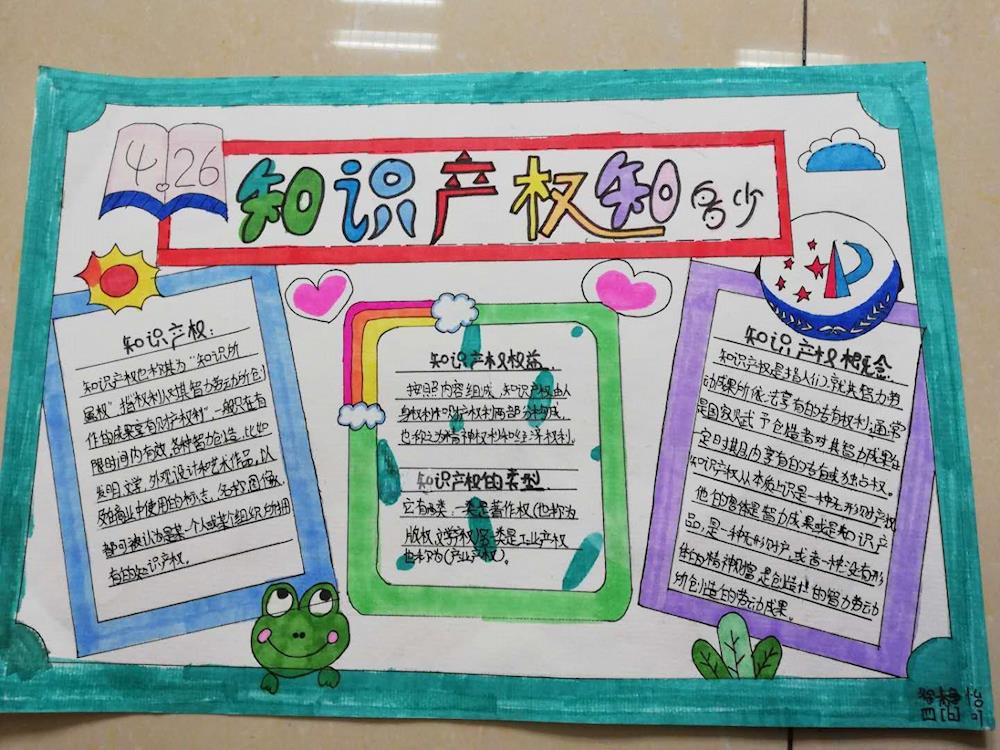 4.26
知识产权知多少
知识产权:
知识产权也称其为“知识所
属权”指权利人对其智力劳动所创
作的成果享有财产权利”一般只在有
限时间内有效,各种智力创造,比如
发明,文学,外观设计和艺术作品,以
及在商业中使用的标志、名称、图像,
都可被认为是某一个人或某个组织所拥
有的知识产权。
知识产权权益
按照内容组成,知识产权由人
身权利和财产权利两部分构成,
也称之为精神权利和经济权利.
知识产权的类型
它有两类,一类是著作权(也称为
版权,文学产权)另一类是工业产权
也称为(产业产权)。
知识产权概念
知识产权是指人们就其智力劳
动成果所依法享有的专有权利,通常
是国家赋予创造者对其智力成果在
一定时期内享有的专有或独占权。
知识产权从本质上说是一种无形财产权
他的客体是智力成果或是知识产
品,是一种无形财产或者一种没有形
体的精神财富,是创造性的智力劳动
所创造的劳动成果。
静怡